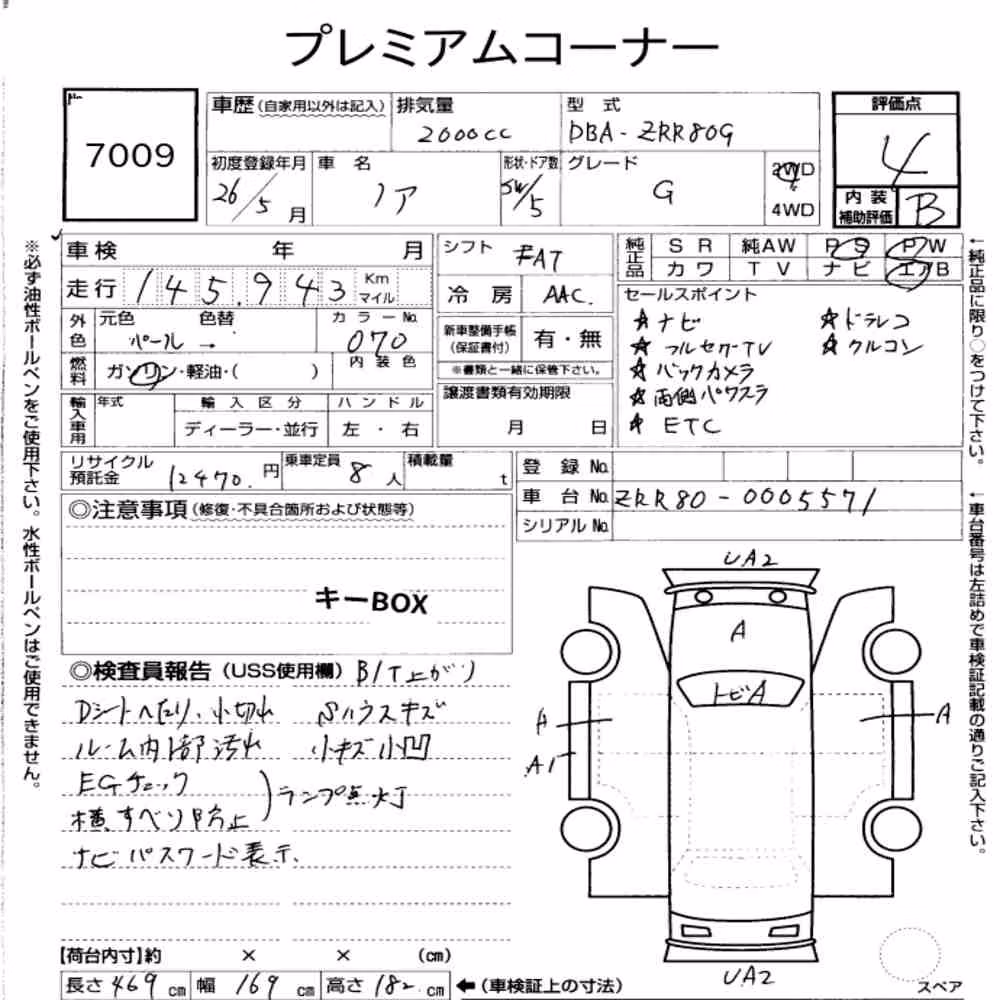 プレミアムコーナー
No.
7009
車歴(自家用以外は記入)
排気量
2000cc
型 式
DBA-ZRR80G
評価点
4
初度登録年月
26/5月
車 名
ノア
形状・ドア数
SW/5
グレード
G
2WD
4WD
内装補助評価
B
車検 年 月
シフト
FAT
純正品
SR 純AW PS PW
カワ TV ナビ エアB
走行 145,943 Km マイル
冷房 AAC.
セールスポイント
☆ナビ
☆フルセグTV
☆バックカメラ
☆両側パワスラ
☆ETC
☆ドラレコ
☆クルコン
外色
元色 パール
色替 →
カラーNo.
070
新車整備手帳(保証書付)
有・無
※書類と一緒に保管下さい。
燃料
ガソリン・軽油・( )
内装色
譲渡書類有効期限
月 日
輸入車用
年式
輸入区分
ディーラー・並行
ハンドル
左・右
リサイクル預託金 12470.円
乗車定員 8人
積載量 t
登録No.
車台No. ZRR80-0005571
シリアルNo.
◎注意事項(修復・不具合箇所および状態等)
キーBOX
◎検査員報告(USS使用欄) B/T上がり
Dシートへたり、小切れ Pハウスキズ
ルーム内1部汚れ 小キズ小凹
EGチェック
横すべり防止
)ランプ点灯
ナビパスワード表示.
【荷台内寸】約 × × (cm)
長さ469cm 幅169cm 高さ182cm ←(車検証上の寸法)
UA2
A
トビA
A
A1
A
UA2
スペア
※必ず油性ボールペンをご使用下さい。水性ボールペンはご使用できません。
←純正品に限り○をつけて下さい。
←車台番号は左詰めで車検証記載の通りご記入下さい。